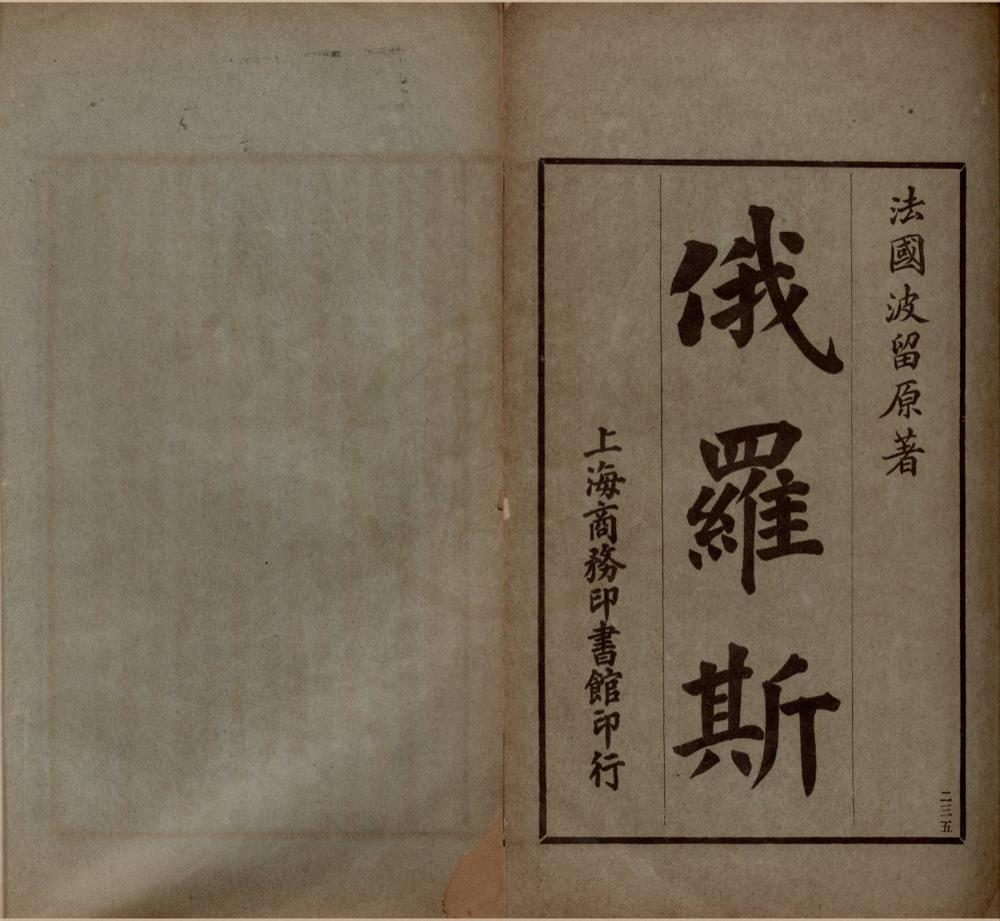 法國波留原著
俄羅斯
上海商務印書館印行
二三五